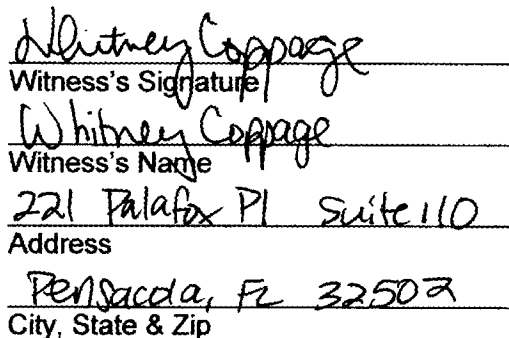 Whitney Coppage
Witness's Signature
Whitney Coppage
Witness's Name
221 Palafox Pl Suite 110
Address
Pensacola, FL 32502
City, State & Zip